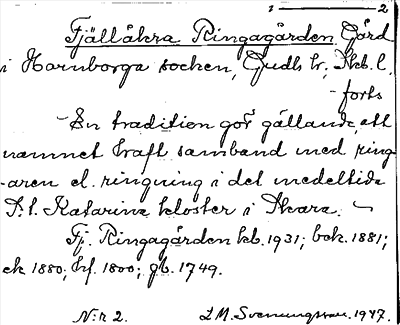 1 — 2
Fjällåkra Ringagården Gård
i Hornborga socken, Gudh. hr, Skb. l.
- forts
- En tradition gör gällande, att
namnet haft samband med ring-
-aren el. ringning i det medeltida
S:t. Katarina kloster i Skara. -
Fj. Ringagården kb. 1931; bok. 1881;
ek 1880; hf. 1800; gb. 1749.
N:r 2. L M. Svenungsson. 1947.